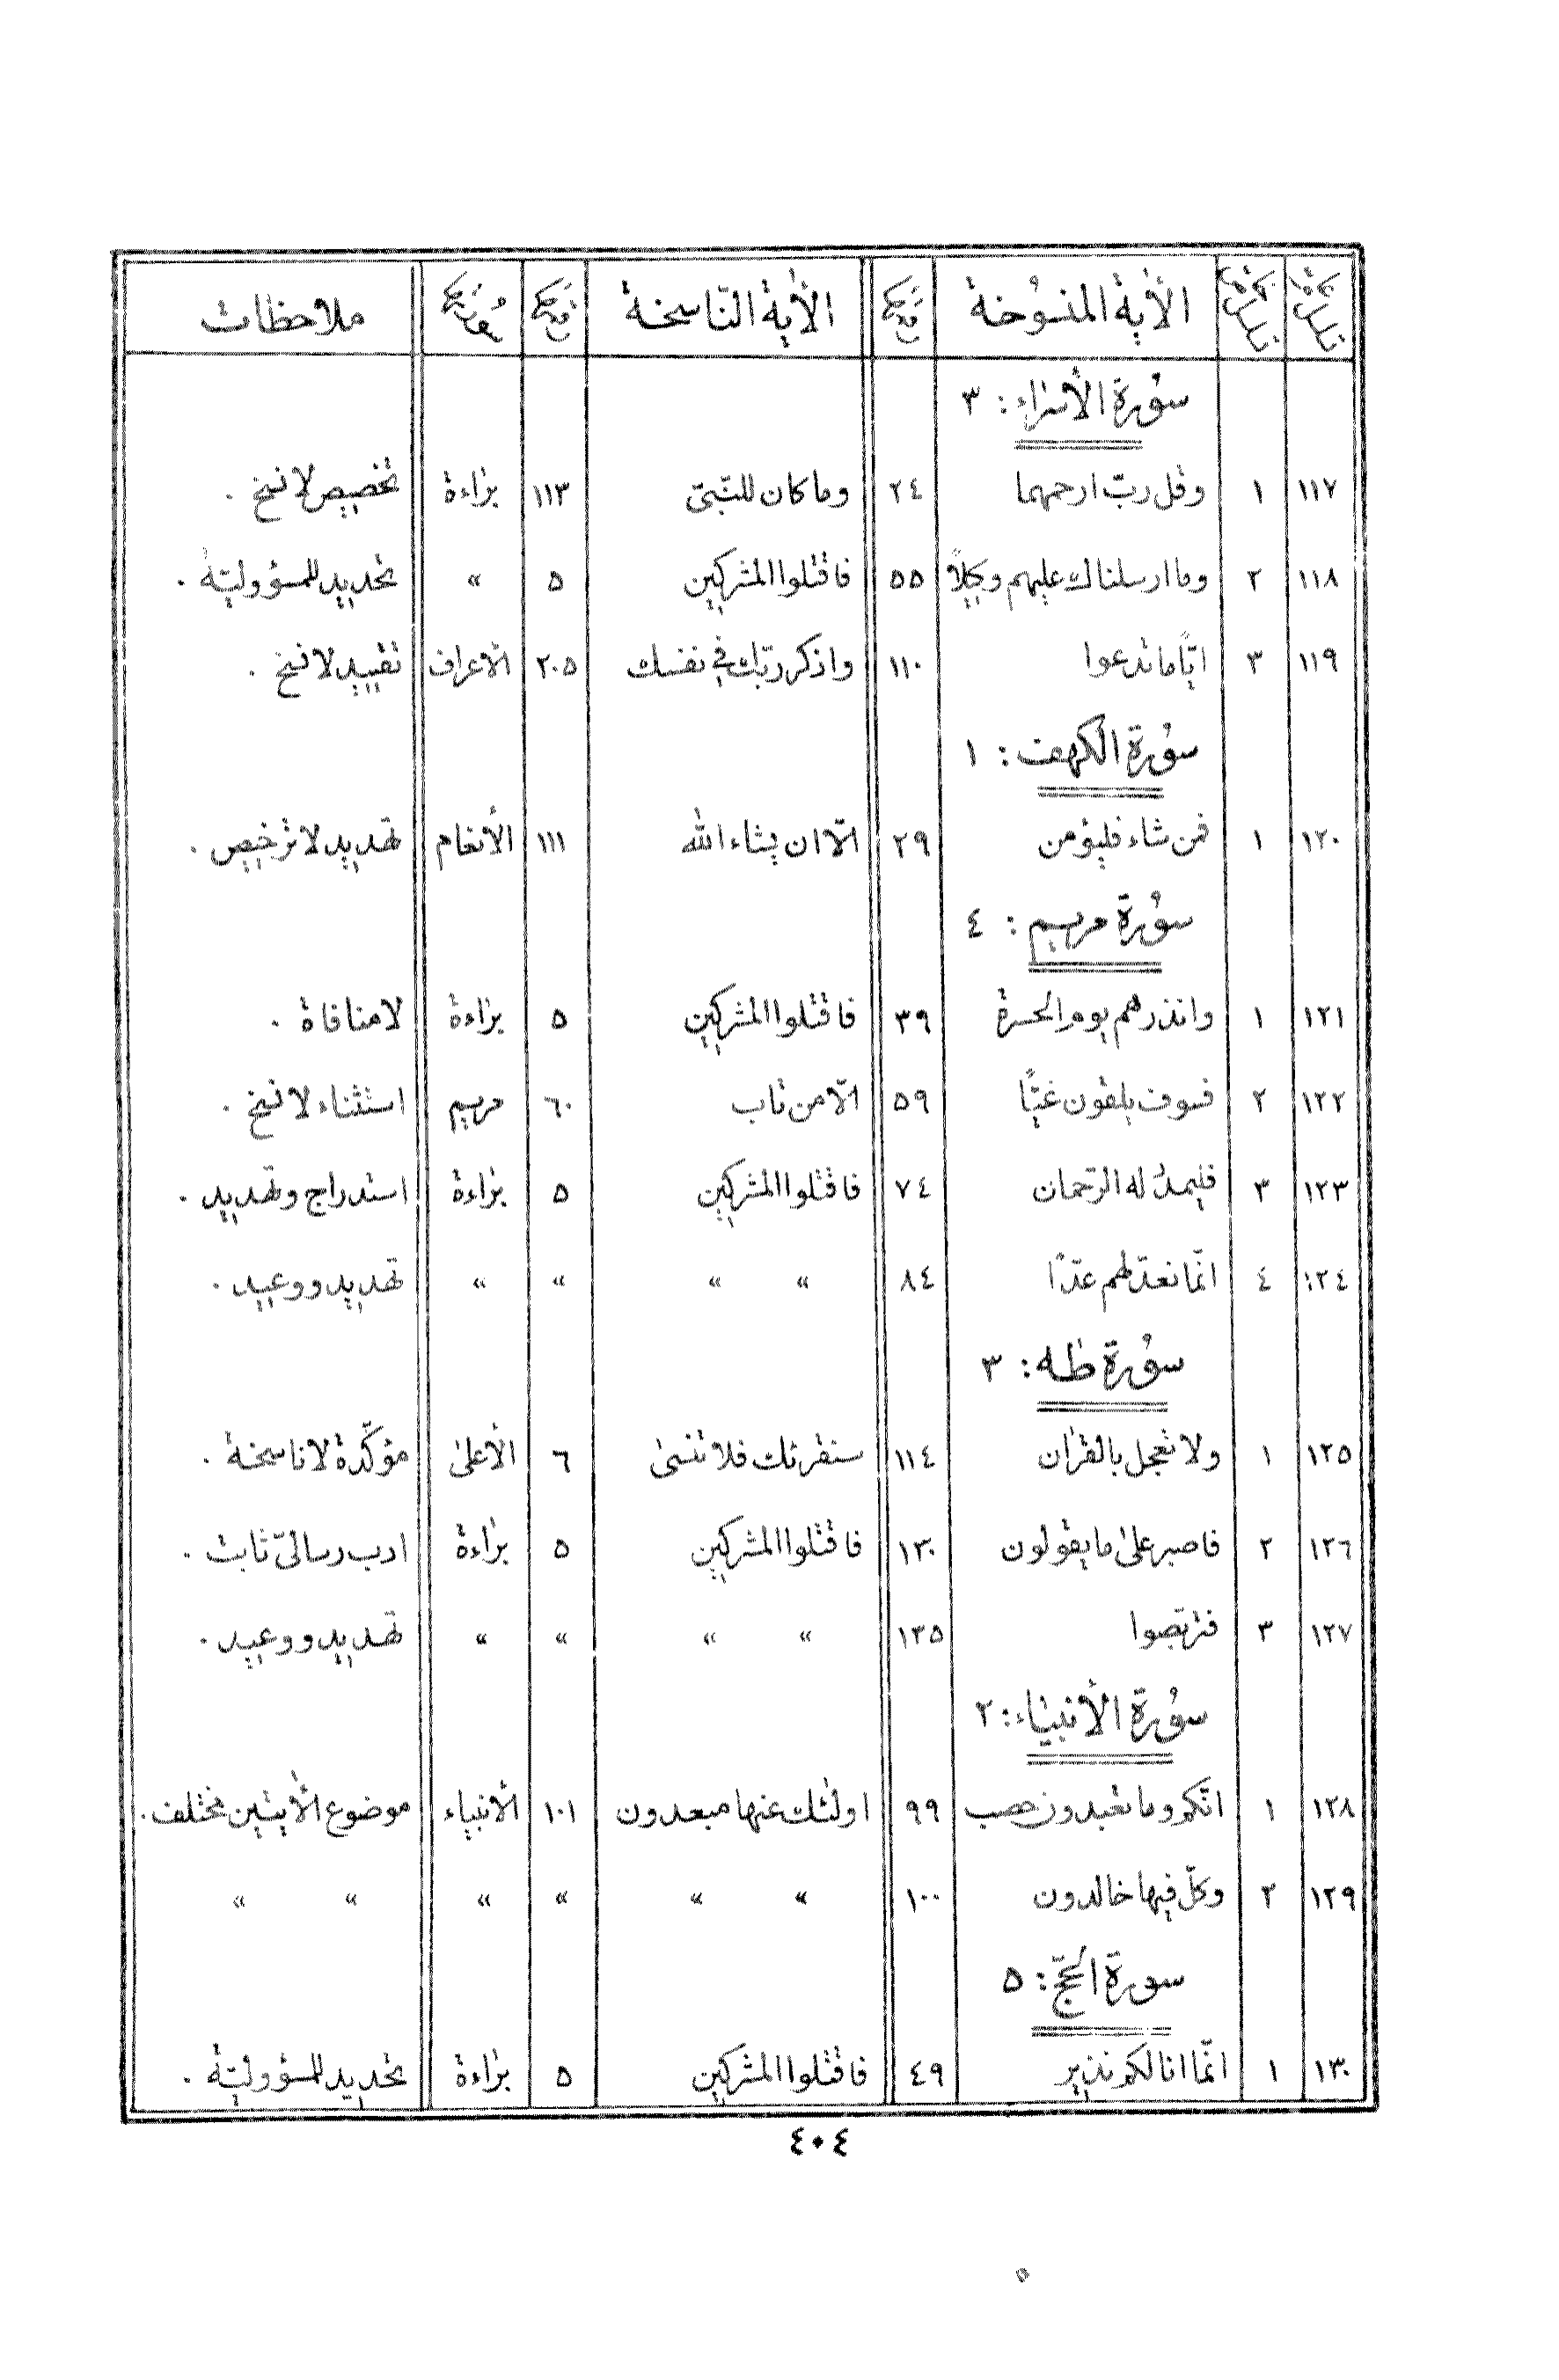 الآية المنسوخة رقمها الآية الناسخة رقمها سورتها ملاحظات
سورة الأسراء: ٣
١١٧ ١ وقل ربّ ارحمهما ٢٤ وما كان للنّبيّ ١١٣ براءة تخصيص لا نسخ .
١١٨ ٢ وما ارسلناك عليهم وكيلاً ٥٥ فاقتلوا المشركين ٥ " تحديد للمسؤوليّة .
١١٩ ٣ ايّاً ما تدعوا ١١٠ واذكر ربّك في نفسك ٢٠٥ الاعراف تقييد لا نسخ .
سورة الكهف: ١
١٢٠ ١ فمن شاء فليؤمن ٢٩ الّا ان يشاء الله ١١١ الأنعام تهديد لا ترخيص .
سورة مريم: ٤
١٢١ ١ وانذرهم يوم الحسرة ٣٩ فاقتلوا المشركين ٥ براءة لا منافاة .
١٢٢ ٢ فسوف يلقون غيّاً ٥٩ الّا من تاب ٦٠ مريم استثناء لا نسخ .
١٢٣ ٣ فليمدد له الرّحمان ٧٤ فاقتلوا المشركين ٥ براءة استدراج وتهديد .
١٢٤ ٤ انّما نعدّ لهم عدّاً ٨٤ " " " " تهديد ووعيد .
سورة طه: ٣
١٢٥ ١ ولا تعجل بالقرآن ١١٤ سنقرئك فلا تنسى ٦ الأعلى مؤكّدة لا ناسخة .
١٢٦ ٢ فاصبر على ما يقولون ١٣٠ فاقتلوا المشركين ٥ براءة ادب رساليّ ثابت .
١٢٧ ٣ فتربّصوا ١٣٥ " " " " تهديد ووعيد .
سورة الأنبياء: ٢
١٢٨ ١ انّكم وما تعبدون حصب ٩٩ اولئك عنها مبعدون ١٠١ الأنبياء موضوع الآيتين مختلف .
١٢٩ ٢ وكلّ فيها خالدون ١٠٠ " " " " " "
سورة الحجّ: ٥
١٣٠ ١ انّما انا لكم نذير ٤٩ فاقتلوا المشركين ٥ براءة تحديد للمسؤوليّة .
٤٠٤